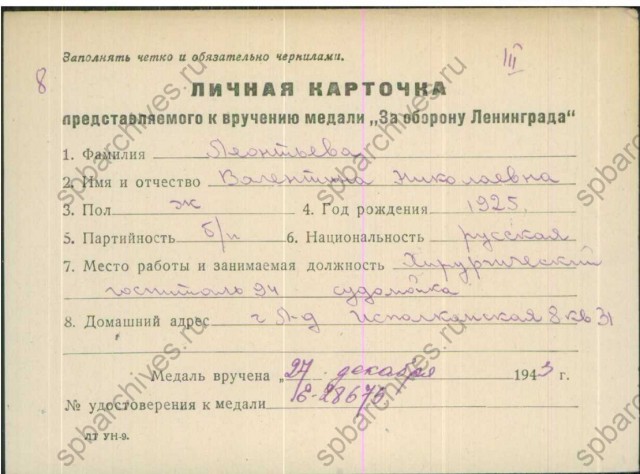 Заполнять четко и обязательно чернилами.
III
8
ЛИЧНАЯ КАРТОЧКА
представляемого к вручению медали „За оборону Ленинграда“
1. Фамилия Леонтьева
2. Имя и отчество Валентина Николаевна
3. Пол ж 4. Год рождения 1925.
5. Партийность б/п 6. Национальность русская
7. Место работы и занимаемая должность Хирургический
госпиталь 94 судомойка
8. Домашний адрес г Л-д Исполкомская 8 кв 31
Медаль вручена „27 декабря 1943 г.
№ удостоверения к медали
ЛТ УН-9.
spbarchives.ru
spbarchives.ru
spbarchives.ru
spbarchives.ru
spbarchives.ru
spbarchives.ru